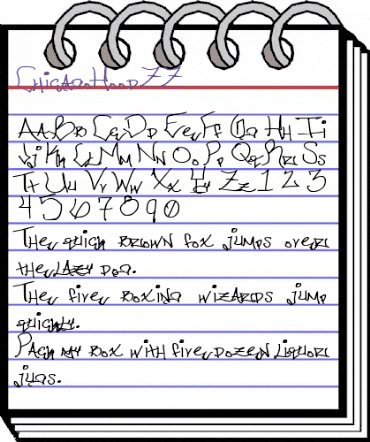 ChicanoHood77
AaBbCcDdEeFfGgHhIi
JjKkLlMmNnOoPpQqRrSs
TtUuVvWwXxYyZz123
4567890
The quick brown fox jumps over
the lazy dog.
The five boxing wizards jump
quickly.
Pack my box with five dozen liquor
jugs.